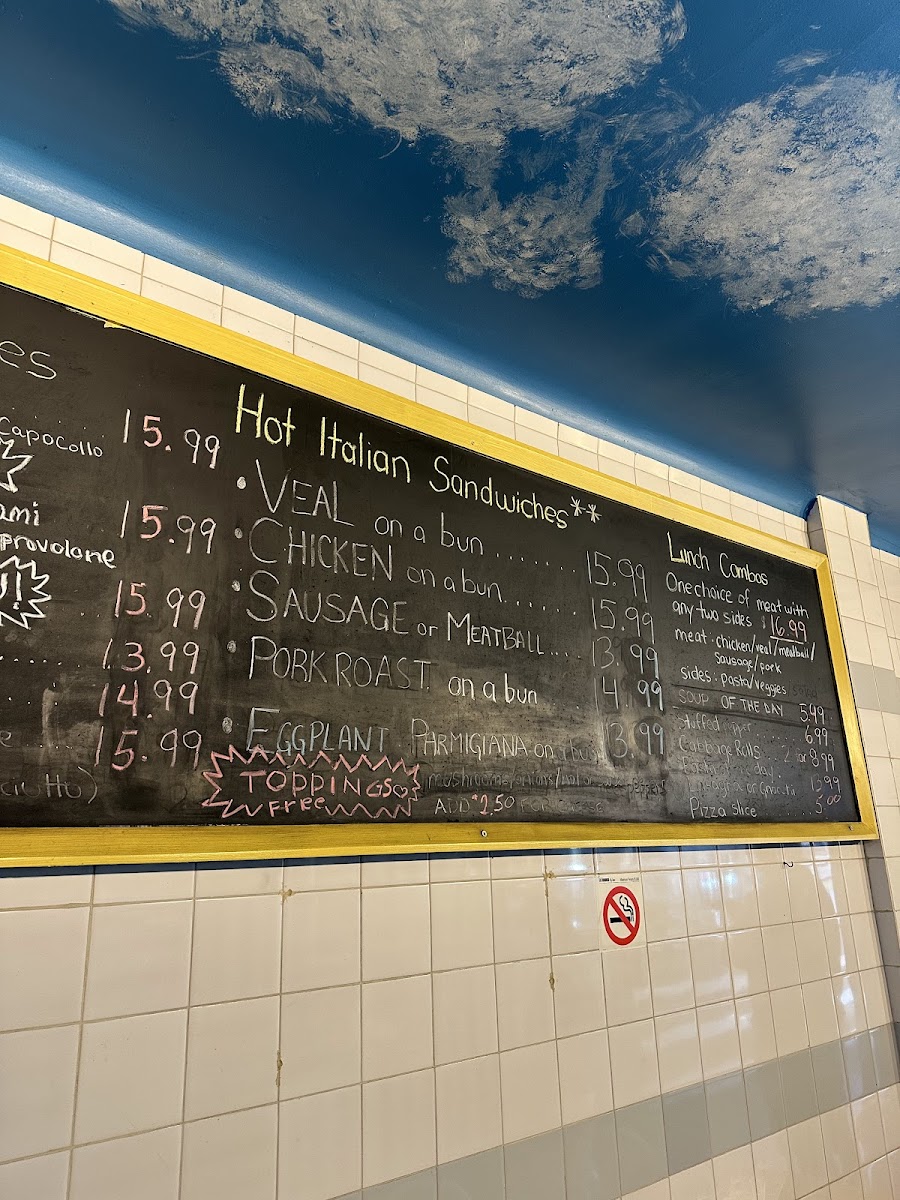 es
Capocollo 15.99
ami
provolone 15.99
15.99
13.99
14.99
15.99
Hot Italian Sandwiches**
• VEAL on a bun ....... 15.99
• CHICKEN on a bun....... 15.99
• SAUSAGE or MEATBALL.... 13.99
• PORK ROAST on a bun 14.99
• EGGPLANT PARMIGIANA on 13.99
TOPPINGS
FREE
ADD $2.50 FOR
Lunch Combos
One choice of meat with
any two sides $16.99
meat: chicken/veal/meatball/
Sausage/pork
sides: pasta/veggies
SOUP OF THE DAY 5.49
Stuffed 6.99
Cabbage Rolls 2 for 8.99
13.99
Pizza slice .... 5.00